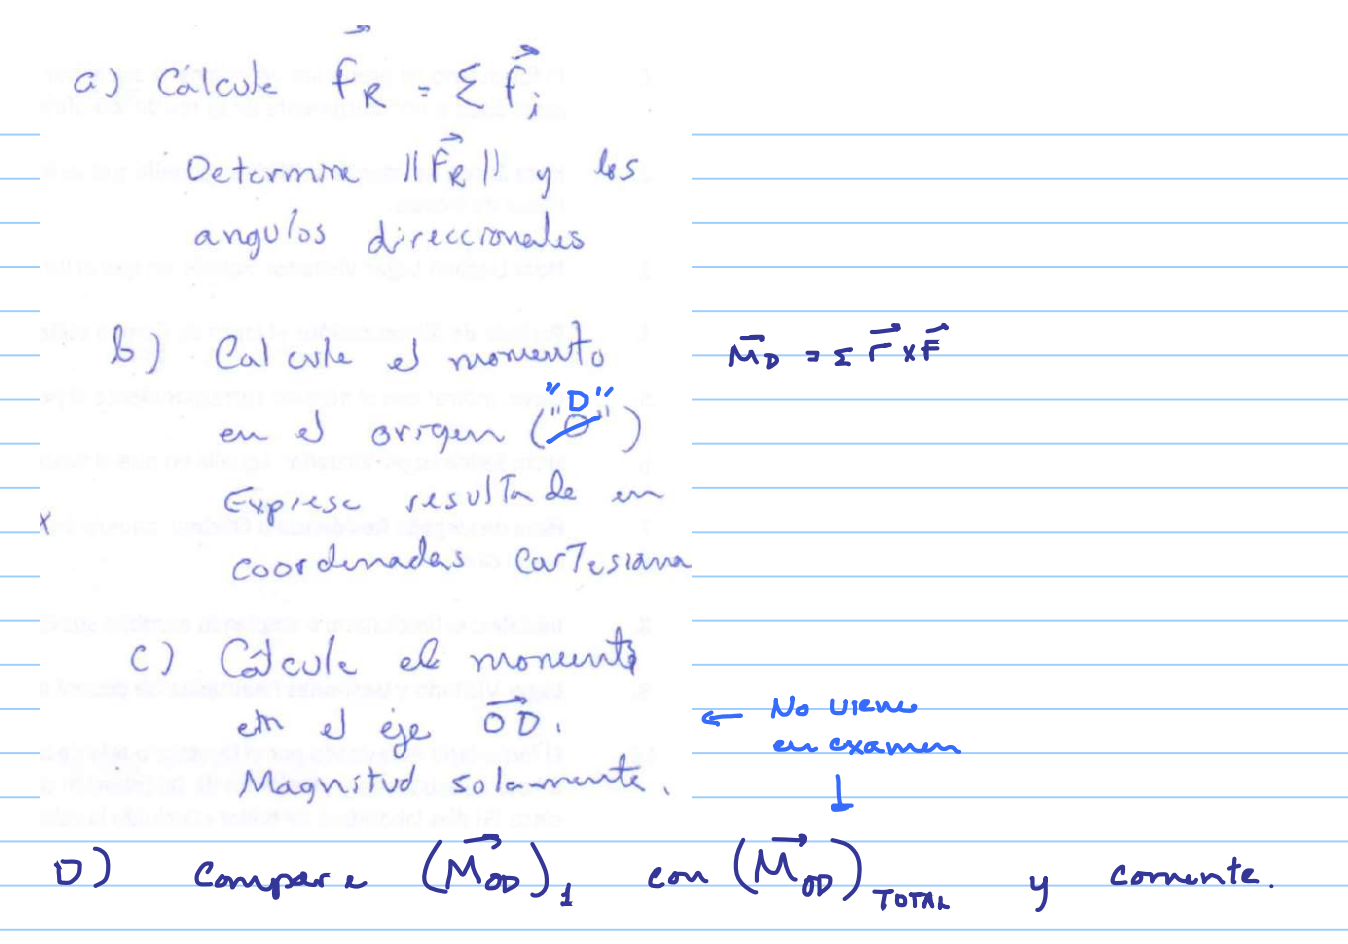 a) Calcule F⃗R = Σ F⃗i
Determine ||F⃗R|| y los
angulos direccionales
b) Calcule el momento
M⃗D = Σ r⃗ x F⃗
"D"
en el origen ("O")
Exprese resultado en
x
coordenadas cartesiana
c) Calcule el momento
en el eje O⃗D⃗.
← No viene
en examen
Magnitud solamente.
D) Compare (M⃗OD)1 con (M⃗OD)TOTAL y comente.